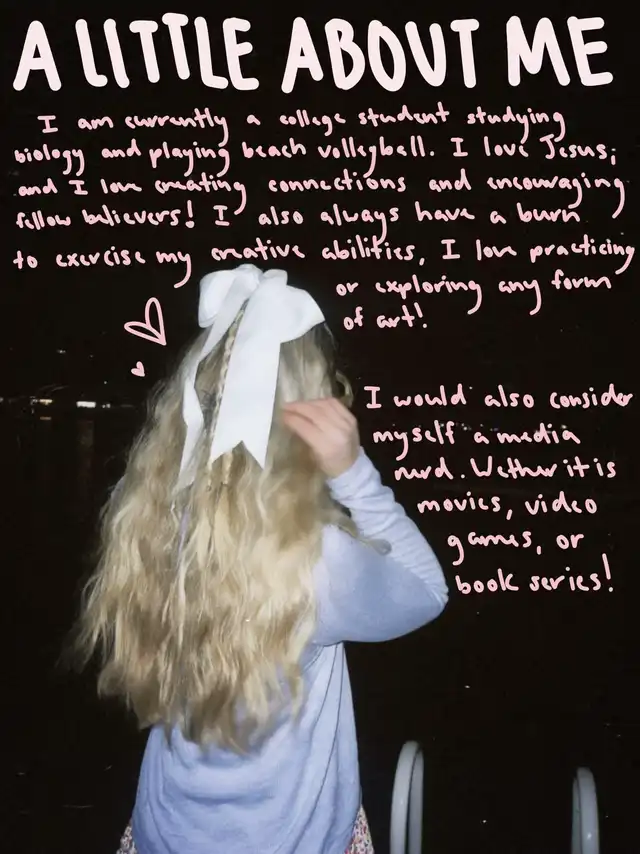 A LITTLE ABOUT ME
I am currently a college student studying
biology and playing beach volleyball. I love Jesus;
and I love creating connections and encouraging
fellow believers! I also always have a burn
to exercise my creative abilities, I love practicing
or exploring any form
of art!
I would also consider
myself a media
nerd. Wether it is
movies, video
games, or
book series!